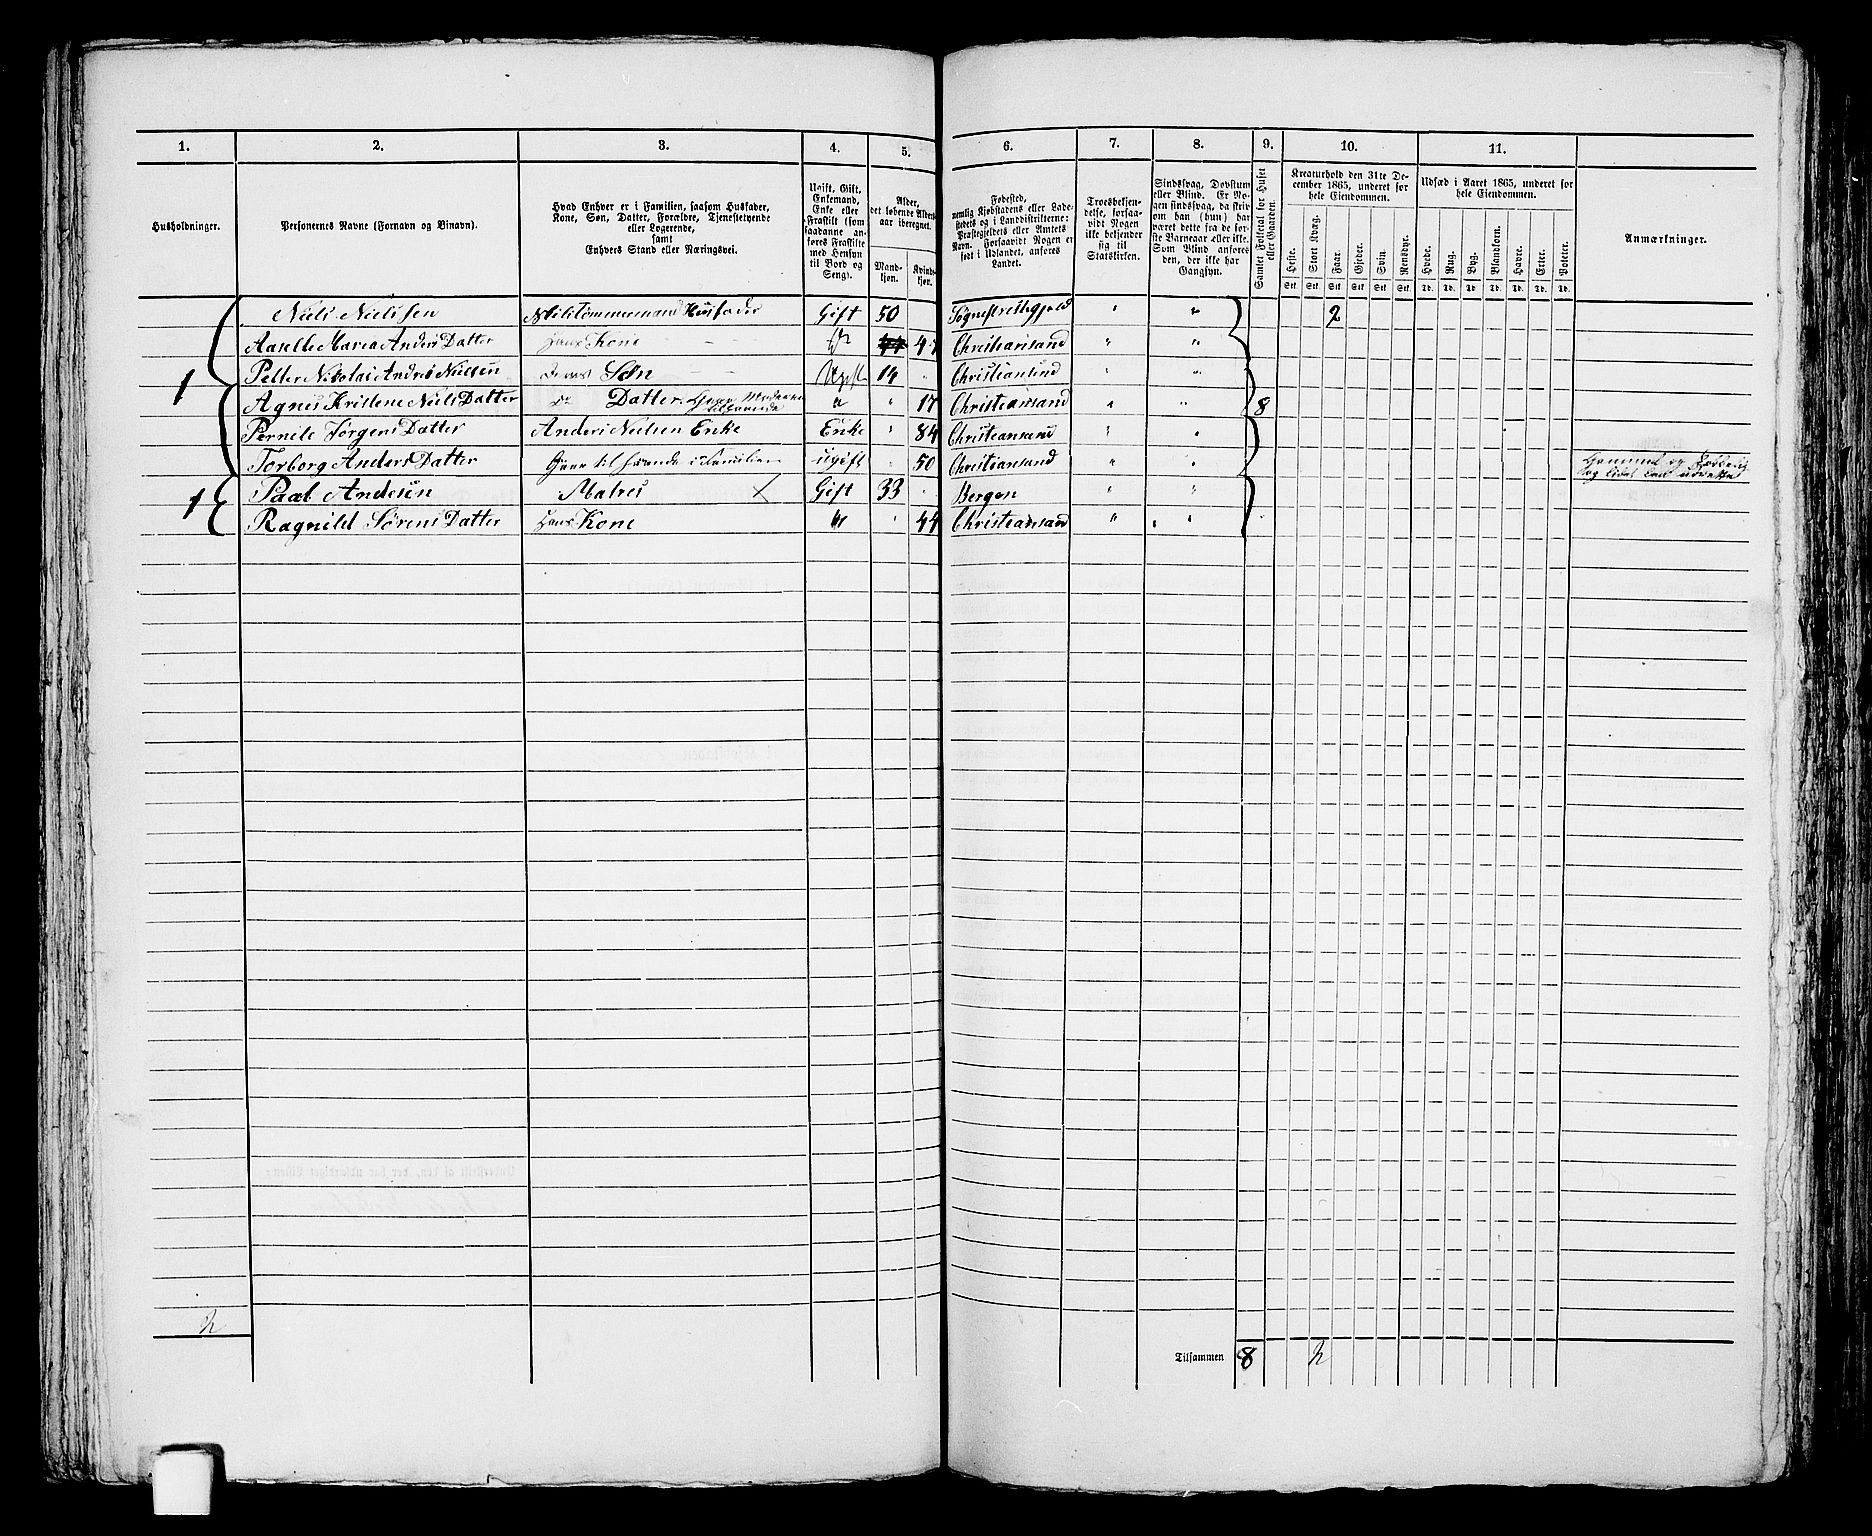 1. 2. 3. 4. 5. 6. 7. 8. 9. 10. 11.
Husholdninger.
Personernes Navne (Fornavn og Binavn).
Hvad Enhver er i Familien, saasom Husfader,
Kone, Søn, Datter, Forældre, Tjenestetyende
eller Logerende,
samt
Enhvers Stand eller Næringsvei.
Ugift, Gift,
Enkemand,
Enke eller
Fraskilt (som
saadanne an-
føres Fraskilte
med Hensyn
til Bord og
Seng).
Alder,
det løbende Alders-
aar iberegnet.
Mand-
kjøn.
Kvind-
kjøn.
Fødested,
nemlig Kjøbstadens eller Lade-
stedets og i Landdistrikterne:
Præstegjeldets eller Amtets
Navn. Forsaavidt Nogen er
født i Udlandet, anføres
Landet.
Troesbekjen-
delse, forsaa-
vidt Nogen
ikke bekjender
sig til
Statskirken.
Sindssvag, Døvstum
eller Blind. Er No-
gen sindssvag, da skriv
om han (hun) har
været dette fra de før-
ste Barneaar eller ikke.
Som Blind anføres
den, der ikke har
Gangsyn.
Samlet Folketal for Huset
eller Gaarden.
Kreaturhold den 31te De-
cember 1865, underet for
hele Eiendommen.
Heste. Stort Kvæg. Faar. Gjeder. Svin. Rensdyr.
Stk. Stk. Stk. Stk. Stk. Stk.
Udsæd i Aaret 1865, underet for
hele Eiendommen.
Hvede. Rug. Byg. Blandkorn. Havre. Erter. Poteter.
Td. Td. Td. Td. Td. Td. Td.
Anmærkninger.
Niels Nielssen Husfader Gift 50 " " 2
Maria Anders Datter Kone D° 4 Christiansand " "
1 Petter Nikolai Andreas Nielsen Søn Ugift 14 " Christiansand " "
Agnes Kristene Niels Datter D° Datter " " 17 Christiansand " " 8
Pernile Jørgens Datter Anders Nielsen Enke Enke " 84 Christiansand " "
Torborg Anders Datter ugift " 50 Christiansand " "
1 Paal Andesen Matros × Gift 33 " Bergen " "
Ragnild Sørens Datter Hans Kone " " 44 Christiansand " "
2
Tilsammen 8 2